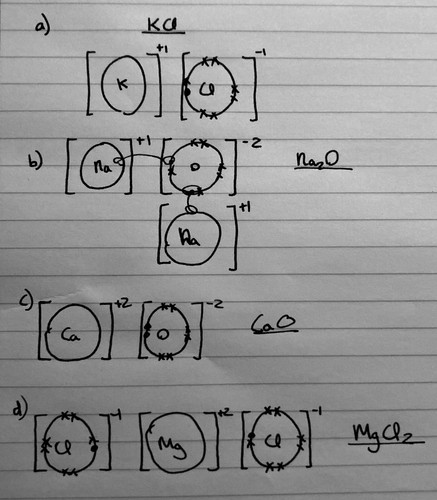 a) KCl
[K]+1 [Cl]-1
b) [Na]+1 [O]-2 Na2O
[Na]+1
c) [Ca]+2 [O]-2 CaO
d) [Cl]-1 [Mg]+2 [Cl]-1 MgCl2